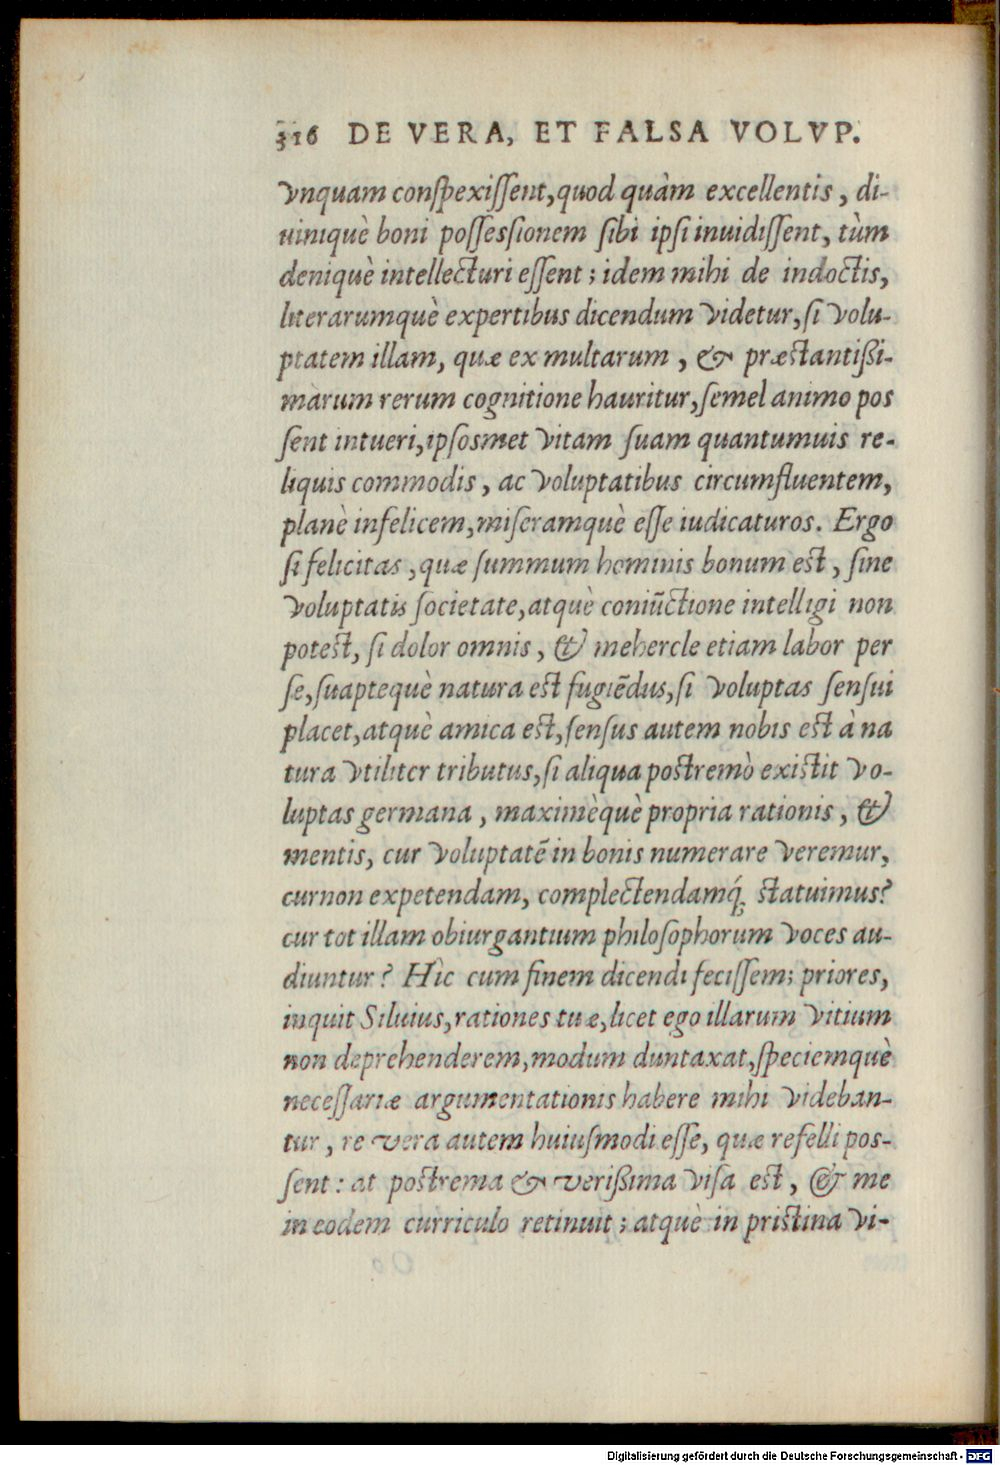 316 DE VERA, ET FALSA VOLVP.
vnquam conspexissent, quod quàm excellentis, di-
uiniquè boni possessionem sibi ipsi inuidissent, tùm
deniquè intellecturi essent; idem mihi de indoctis,
literarumquè expertibus dicendum videtur, si volu-
ptatem illam, quæ ex multarum, & præstantißi-
marum rerum cognitione hauritur, semel animo pos
sent intueri, ipsosmet vitam suam quantumuis re-
liquis commodis, ac voluptatibus circumfluentem,
planè infelicem, miseramquè esse iudicaturos. Ergo
si felicitas, quæ summum hominis bonum est, sine
voluptatis societate, atquè coniũctione intelligi non
potest, si dolor omnis, & mehercle etiam labor per
se, suaptequè natura est fugiẽdus, si voluptas sensui
placet, atquè amica est, sensus autem nobis est à na
tura vtiliter tributus, si aliqua postremò existit vo-
luptas germana, maximèquè propria rationis, &
mentis, cur voluptatẽ in bonis numerare veremur,
cur non expetendam, complectendamq́; statuimus?
cur tot illam obiurgantium philosophorum voces au-
diuntur? Hìc cum finem dicendi fecissem; priores,
inquit Siluius, rationes tuæ, licet ego illarum vitium
non deprehenderem, modum duntaxat, speciemquè
necessariæ argumentationis habere mihi videban-
tur, re vera autem huiusmodi esse, quæ refelli pos-
sent: at postrema & verißima visa est, & me
in eodem curriculo retinuit; atquè in pristina vi-
Digitalisierung gefördert durch die Deutsche Forschungsgemeinschaft - DFG